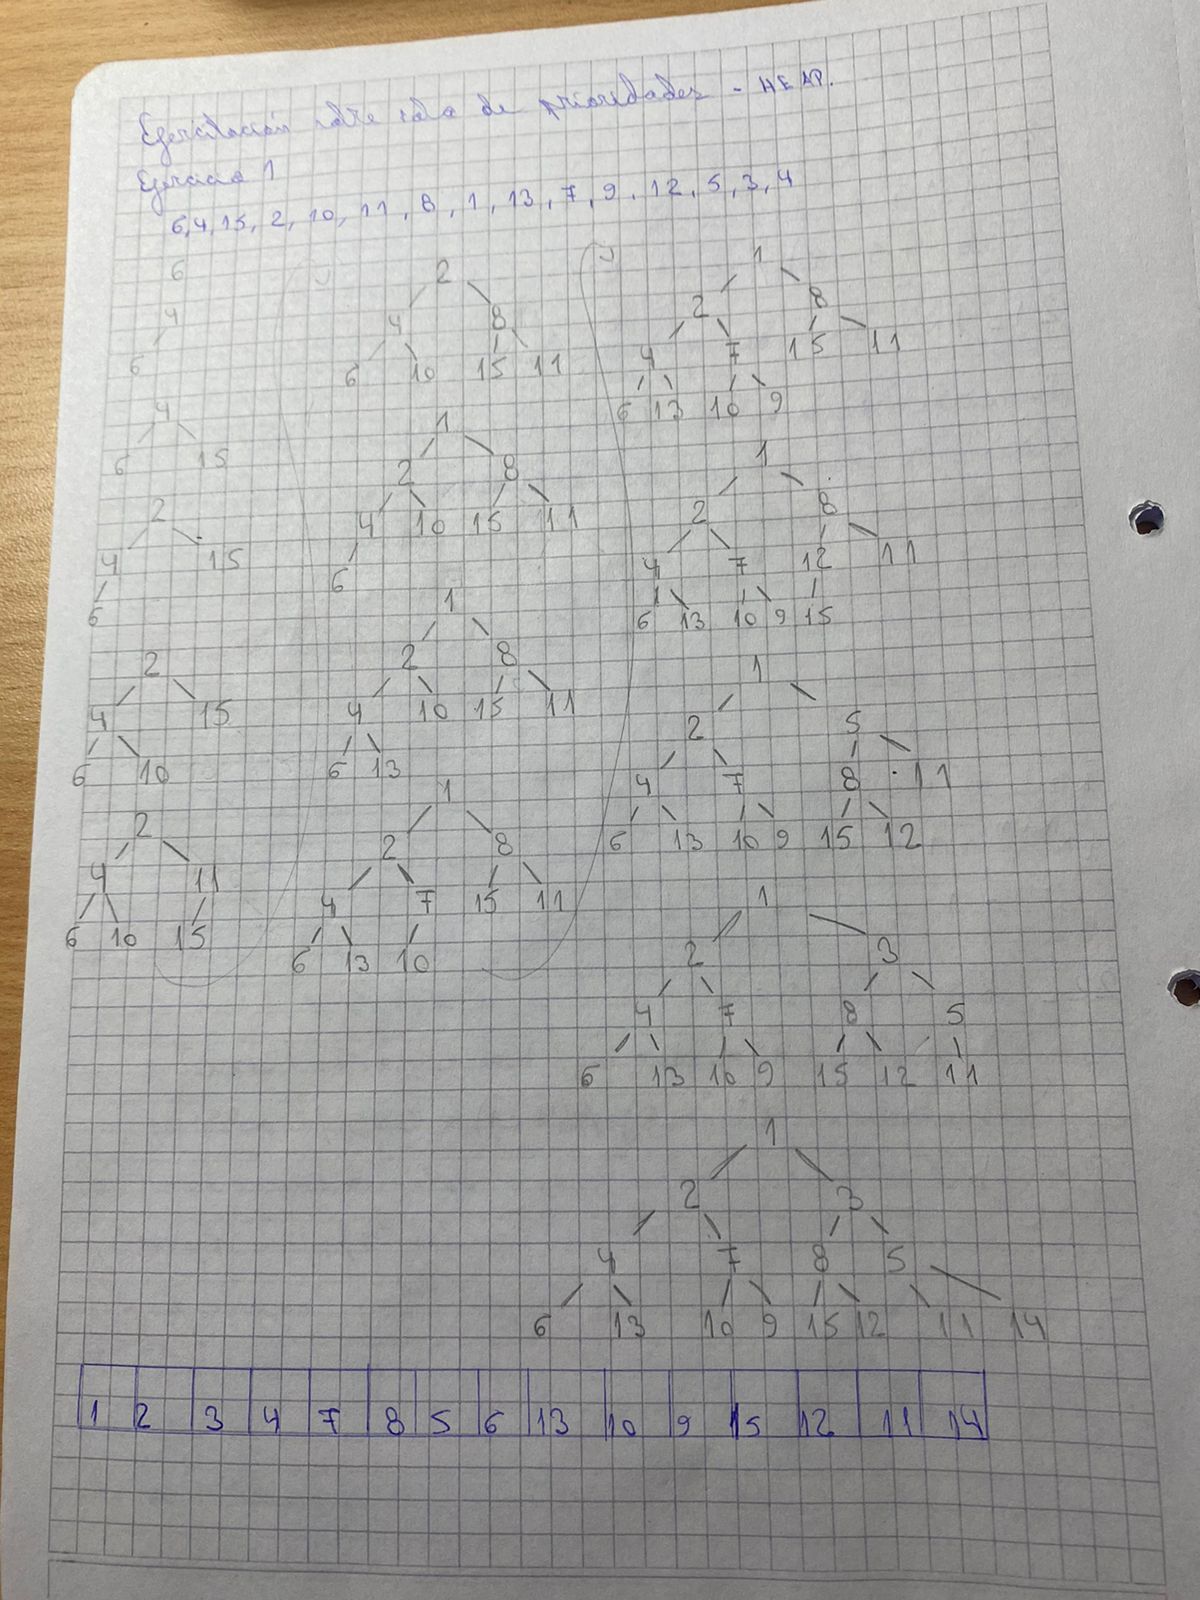 Ejercitación sobre cola de prioridades - HEAP.
Ejercicio 1
6,4,15,2,10,11,8,1,13,7,9,12,5,3,4
6
4
6
4
6 15
2
4 15
6
2
4 15
6 10
2
4 11
6 10 15
2
4 8
6 10 15 11
1
2 8
4 10 15 11
6
1
2 8
4 10 15 11
6 13
1
2 8
4 7 15 11
6 13 10
1
2 8
4 7 15 11
6 13 10 9
1
2 8
4 7 12 11
6 13 10 9 15
1
2 5
4 7 8 11
6 13 10 9 15 12
1
2 3
4 7 8 5
6 13 10 9 15 12 11
1
2 3
4 7 8 5
6 13 10 9 15 12 11 14
1 2 3 4 7 8 5 6 13 10 9 15 12 11 14